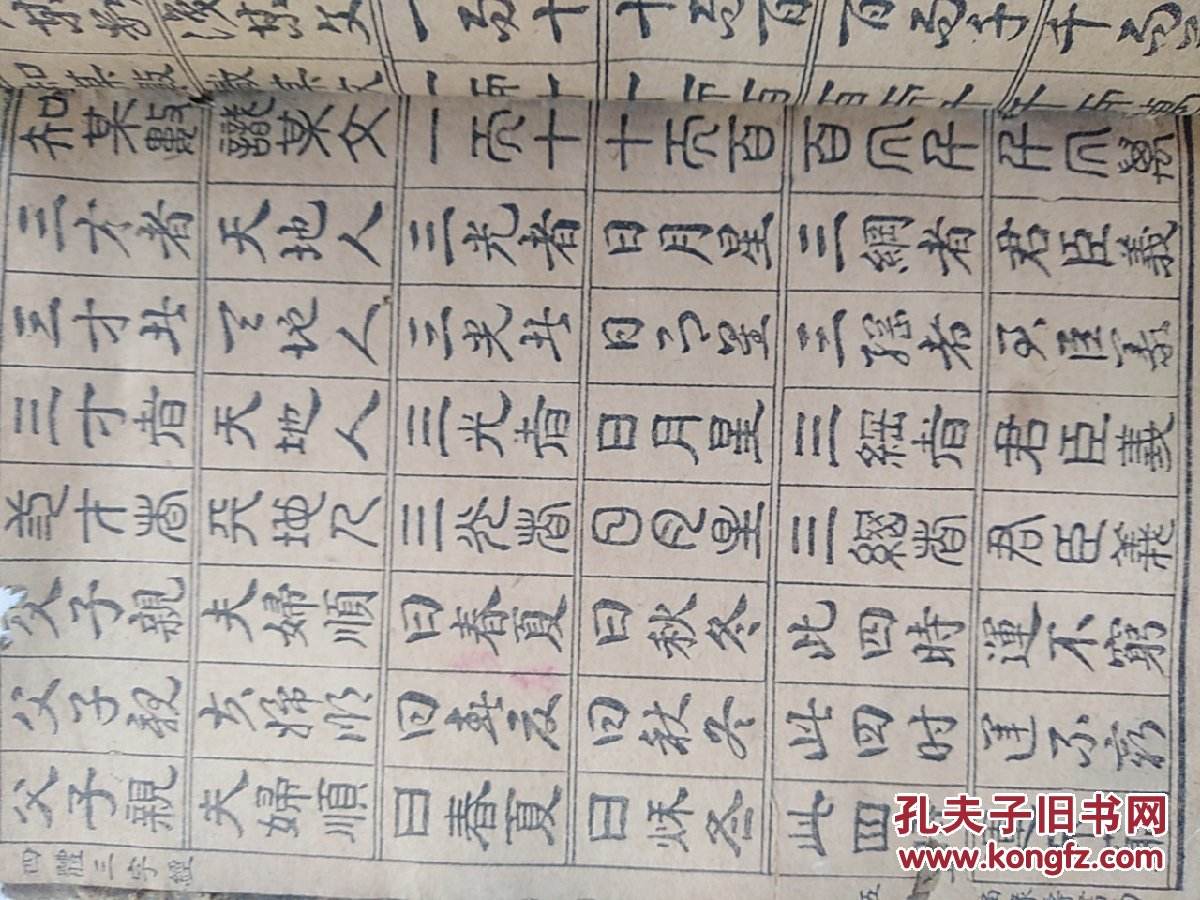 一而十 十而百 百而千 千而萬
知某數 識某文 一而十 十而百 百而千 千而萬
三才者 天地人 三光者 日月星 三綱者 君臣義
三才者 天地人 三光者 日月星 三綱者 君臣義
三才者 天地人 三光者 日月星 三綱者 君臣義
三才者 天地人 三光者 日月星 三綱者 君臣義
父子親 夫婦順 曰春夏 曰秋冬 此四時 運不窮
父子親 夫婦順 曰春夏 曰秋冬 此四時 運不窮
父子親 夫婦順 曰春夏 曰秋冬 此四
四體三字經
五
孔夫子旧书网
www.kongfz.com